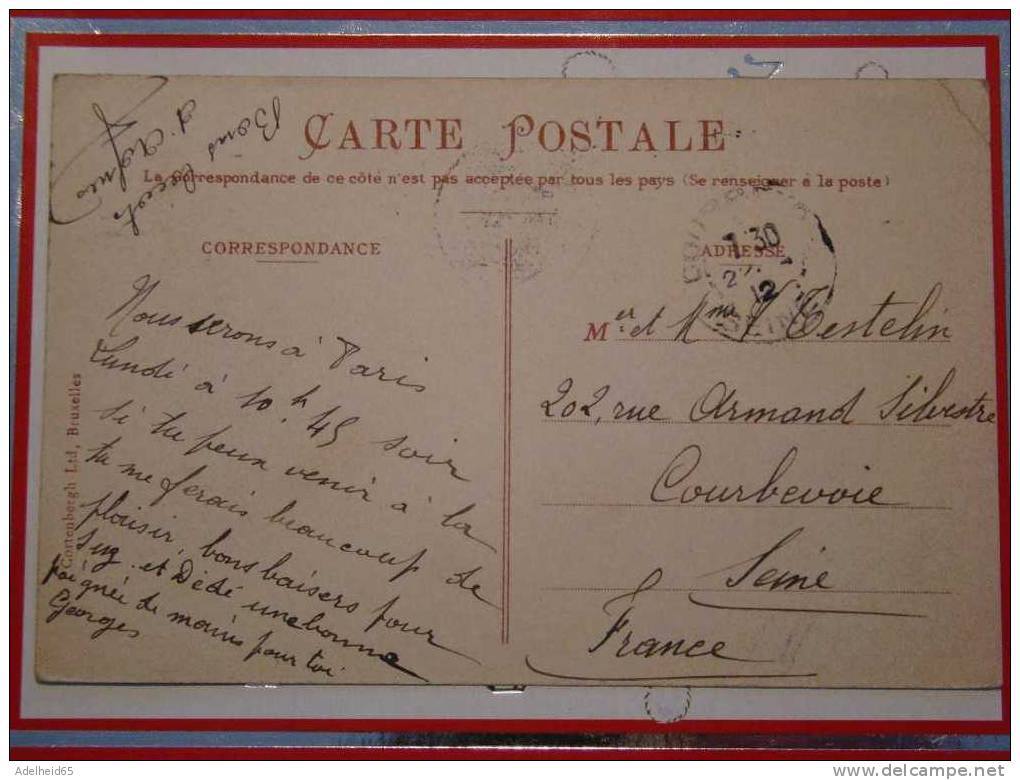 Bons
d'Agnes
CARTE POSTALE
La correspondance de ce côté n'est pas acceptée par tous les pays (Se renseigner à la poste)
CORRESPONDANCE
Nous serons à Paris
Lundi à 10 h 45 soir
si tu peux venir à la
tu me ferais beaucoup de
plaisir, bons baisers pour
Suz. et Dédé une bonne
poignée de mains pour toi
Georges
Cortenbergh Ltd, Bruxelles
ADRESSE
7:30
12
SEINE
Mer et Mme V. Testelin
202, rue Armand Silvestre
Courbevoie
Seine
France
Adelheid65